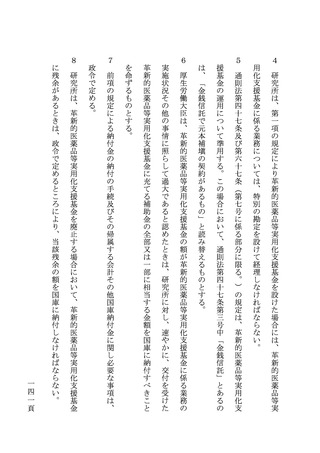 4　研究所は、第一項の規定により革新的医薬品等実用化支援基金を設けた場合には、革新的医薬品等実
用化支援基金に係る業務については、特別の勘定を設けて経理しなければならない。
5　通則法第四十七条及び第六十七条（第七号に係る部分に限る。）の規定は、革新的医薬品等実用化支
援基金の運用について準用する。この場合において、通則法第四十七条第三号中「金銭信託」とあるの
は、「金銭信託で元本補塡の契約があるもの」と読み替えるものとする。
6　厚生労働大臣は、革新的医薬品等実用化支援基金の額が革新的医薬品等実用化支援基金に係る業務の
実施状況その他の事情に照らして過大であると認めたときは、研究所に対し、速やかに、交付を受けた
革新的医薬品等実用化支援基金に充てる補助金の全部又は一部に相当する金額を国庫に納付すべきこと
を命ずるものとする。
7　前項の規定による納付金の納付の手続及びその帰属する会計その他国庫納付金に関し必要な事項は、
政令で定める。
8　研究所は、革新的医薬品等実用化支援基金を廃止する場合において、革新的医薬品等実用化支援基金
に残余があるときは、政令で定めるところにより、当該残余の額を国庫に納付しなければならない。
一四一頁